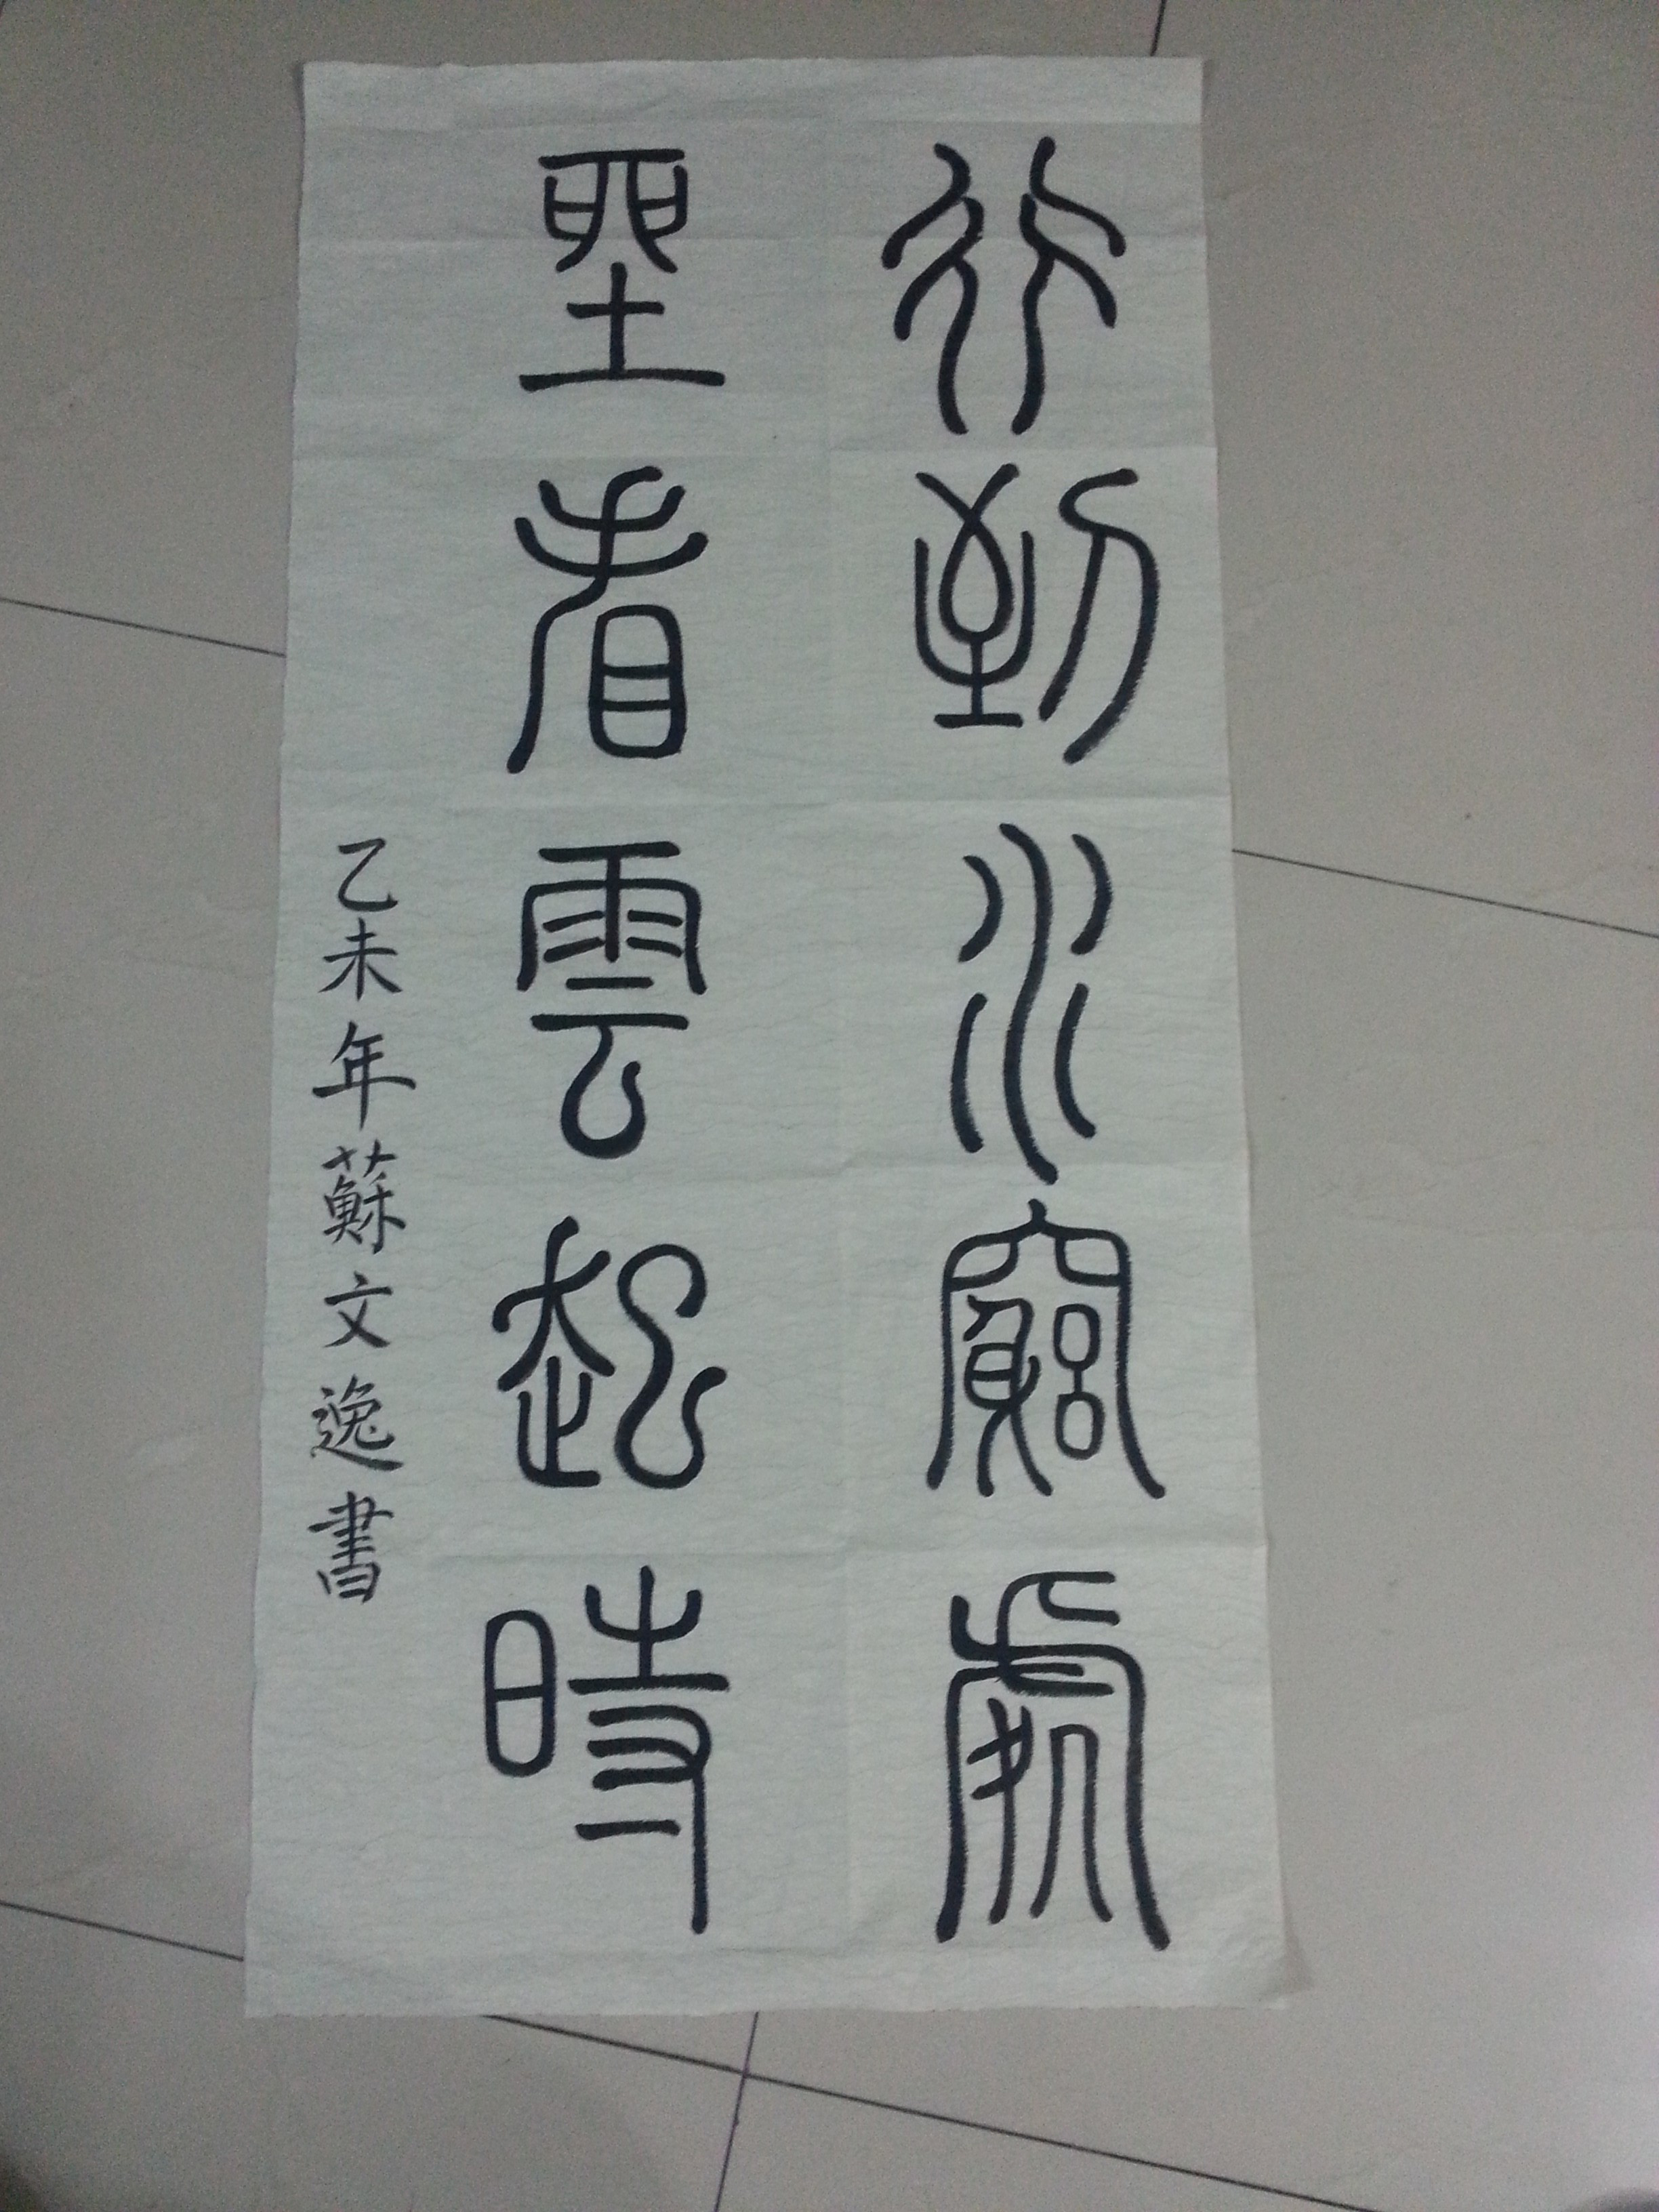 行到水窮處
坐看雲起時
乙未年蘇文逸書